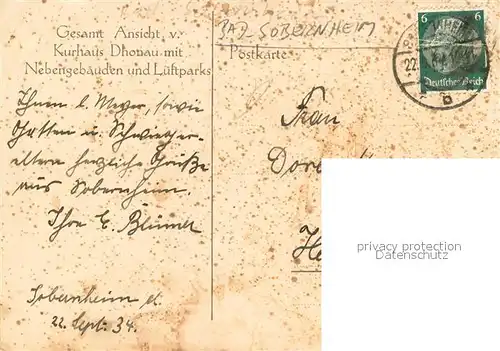 Gesamt Ansicht v.
Kurhaus Dhonau mit
Nebengebäuden und Luftparks
BAD-SOBERNHEIM
Postkarte
6 6
Deutsches Reich
22.
b
Ihnen l. Meyer, sowie
Gatten u. Schwieger-
eltern herzliche Grüße
aus Sobernheim.
Ihre E. Blümel
Sobernheim d.
22. Sept. 34.
Frau
privacy protection